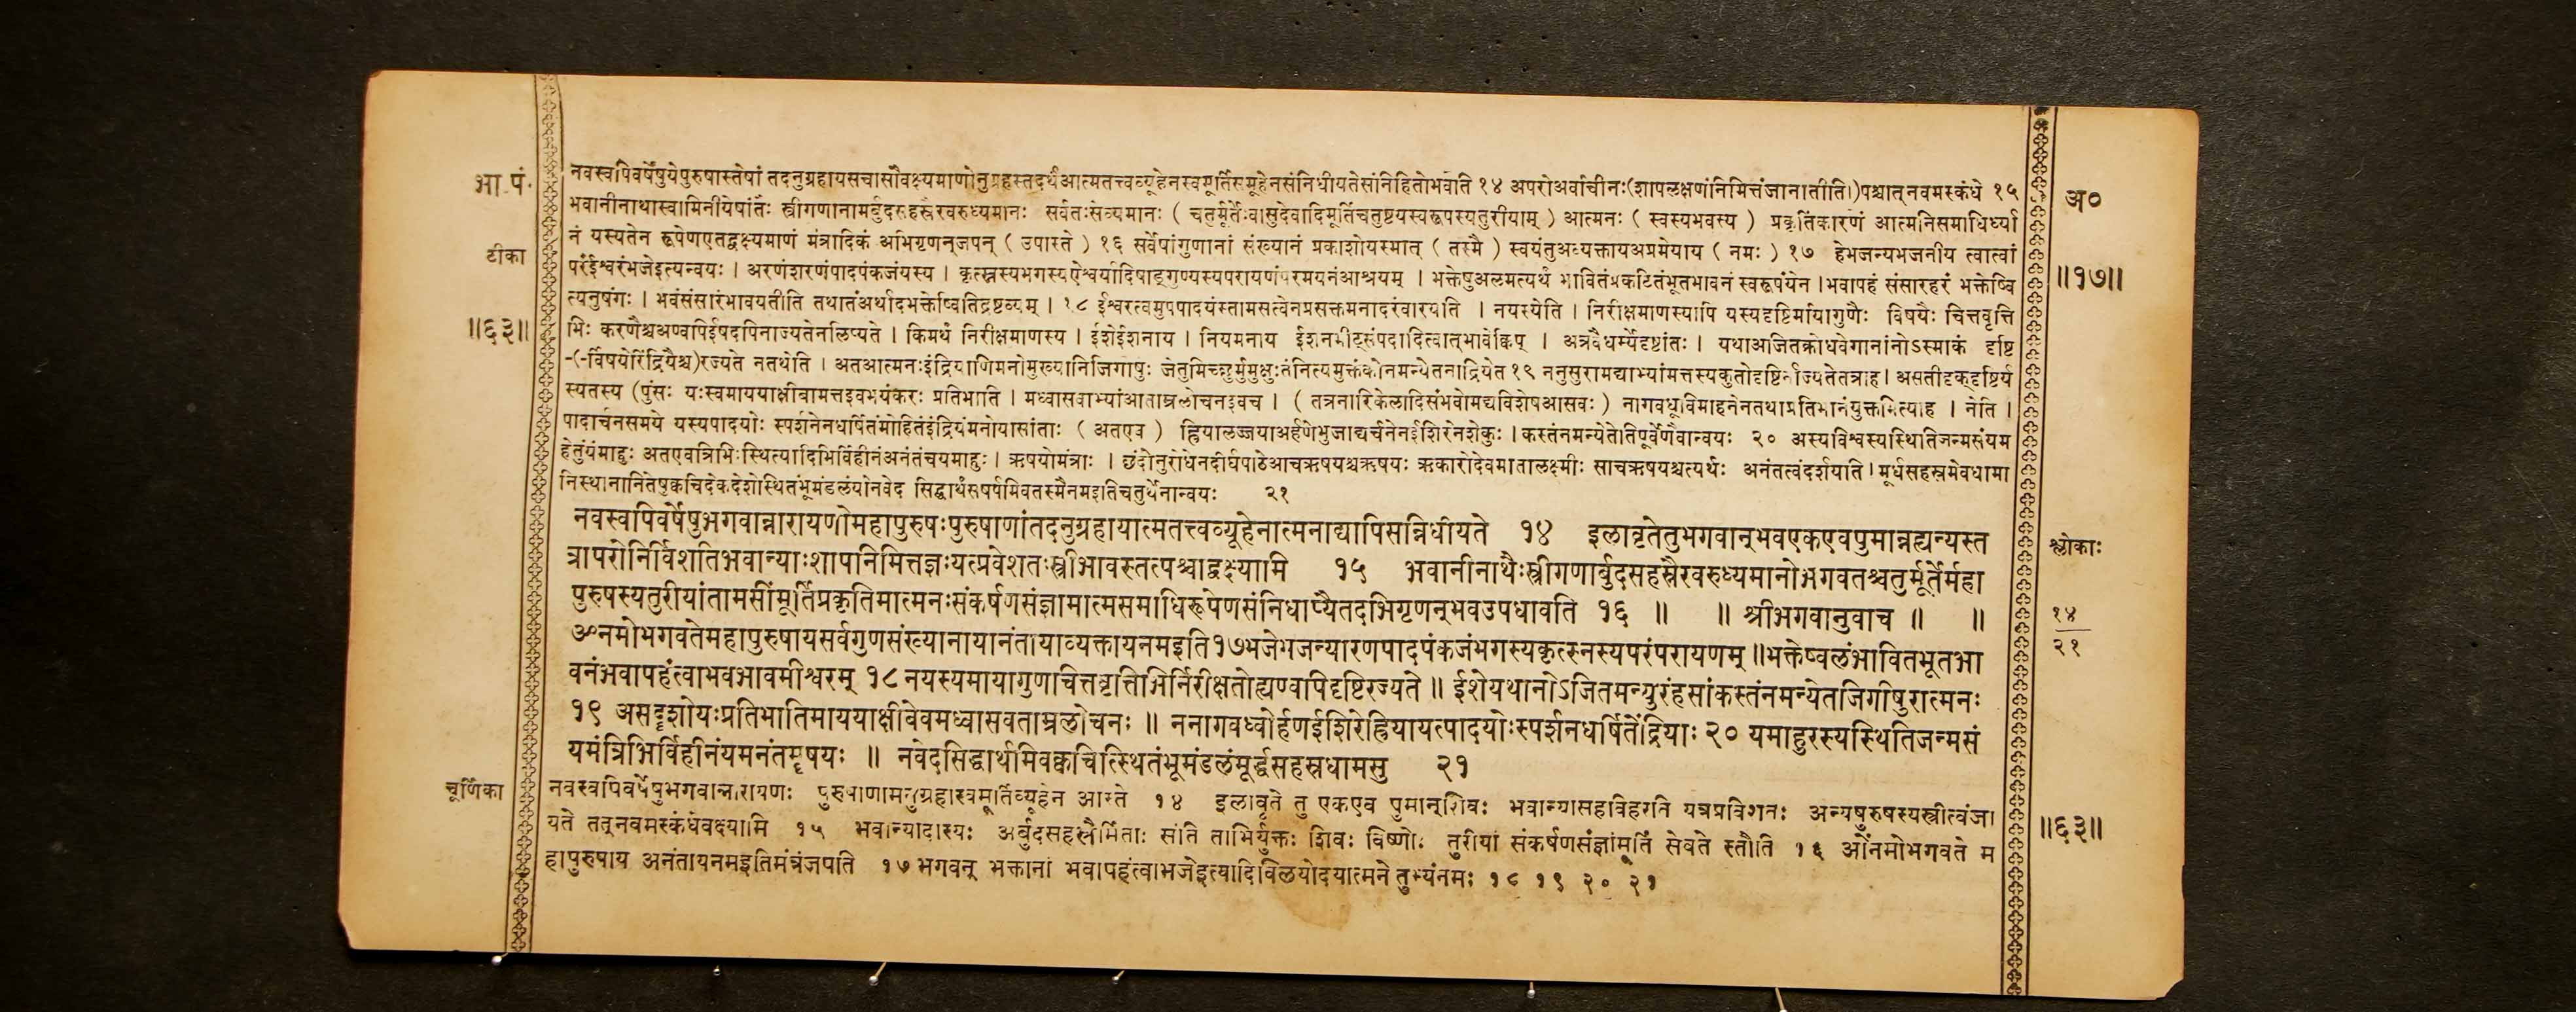 आ.पं.
नवस्वपिवर्षेषुयेपुरुषास्तेषां तदनुग्रहायसचासौवक्ष्यमाणोनुग्रहस्तदर्थंआत्मतत्त्वव्यूहेनस्वमूर्तिसमूहेनसंनिधीयतेसंनिहितोभवति १४ अपरोअर्वाचीनः(शापलक्षणांनिमित्तंजानातीति।)पश्चात्नवमस्कंधे १५
अ०
भवानीनाथास्वामिनीयेषांतैः स्त्रीगणानामर्बुदसहस्रैरवरुध्यमानः सर्वतःसेव्यमानः ( चतुर्मूर्तेःवासुदेवादिमूर्तिचतुष्टयस्वरूपस्यतुरीयाम् ) आत्मनः ( स्वस्यभवस्य ) प्रकृतिंकारणं आत्मनिसमाधिर्ध्या
टीका
नं यस्यतेन रूपेणएतद्वक्ष्यमाणं मंत्रादिकं अभिगृणन्जपन् ( उपास्ते ) १६ सर्वेषांगुणानां संख्यानं प्रकाशोयस्मात् ( तस्मै ) स्वयंतुअव्यक्तायअप्रमेयाय ( नमः ) १७ हेभजन्यभजनीय त्वात्वां
॥१७॥
परंईश्वरंभजेइत्यन्वयः । अरणंशरणंपादपंकजंयस्य । कृत्स्नस्यभगस्यऐश्वर्यादिषाड्गुण्यस्यपरायणंपरमयनंआश्रयम् । भक्तेषुअलमत्यर्थं भावितंप्रकटितंभूतभावनं स्वरूपंयेन । भवापहं संसारहरं भक्तेष्वि
त्यनुषंगः । भवंसंसारंभावयतीति तथातंअर्थादभक्तेष्वितिद्रष्टव्यम् । १८ ईश्वरत्वमुपपादयंस्तामसत्वेनप्रसक्तमनादरंवारयति । नयस्येति । निरीक्षमाणस्यापि यस्यदृष्टिर्मायागुणैः विषयैः चित्तवृत्ति
॥६३॥
भिः करणैश्चअण्वपिईषदपिनाज्यतेनलिप्यते । किमर्थं निरीक्षमाणस्य । ईशेईशनाय । नियमनाय अत्रवैधर्म्येदृष्टांतः । यथाअजितक्रोधवेगानांनोऽस्माकं दृष्टि
रज्यते नतथेति । अतआत्मनःइंद्रियाणिमनोमुख्यानिजिगीषुः जेतुमिच्छुर्मुमुक्षुःतंनित्यमुक्तंकोनमन्येतनाद्रियेत १९ ननुसुरामद्याभ्यांमत्तस्यकुतोदृष्टिर्नाज्यतेतत्राह। असतीदृक्दृष्टिर्य
स्यतस्य (पुंसः यःस्वमाययाक्षीबोमत्तइवभयंकरः प्रतिभाति । मध्वासवाभ्यांआताम्रलोचनइवच । ( तत्रनारिकेलादिसंभवोमद्यविशेषआसवः ) नागवध्वविमोहनेनतथाप्रतिभानंयुक्तमित्याह । नेति ।
पादार्चनसमये यस्यपादयोः स्पर्शनेनधर्षितंमोहितंइंद्रियंमनोयासांताः ( अतएव ) ह्रियालज्जयाअर्हणेभुजाद्यर्चनेनईशिरेनशेकुः । कस्तंनमन्येतेतिपूर्वेणैवान्वयः २० अस्यविश्वस्यस्थितिजन्मसंयम
हेतुंयंमाहुः अतएवत्रिभिःस्थित्यादिभिर्विहीनंअनंतंचयमाहुः । ऋषयोमंत्राः । छंदोनुरोधेनदीर्घपाठेआचऋषयश्चऋषयः ऋकारोदेवमातालक्ष्मीः साचऋषयश्चत्यर्थः अनंतत्वंदर्शयति । मूर्धसहस्रमेवधामा
निस्थानानितेषुक्वचिदेकदेशेस्थितंभूमंडलंयोनवेद सिद्धार्थंसर्षपमिवतस्मैनमइतिचतुर्थेनान्वयः २१
नवस्वपिवर्षेषुभगवान्नारायणोमहापुरुषःपुरुषाणांतदनुग्रहायात्मतत्त्वव्यूहेनात्मनाद्यापिसन्निधीयते १४ इलावृतेतुभगवान्भवएकएवपुमान्नह्यन्यस्त
श्लोकाः
त्रापरोनिर्विशतिभवान्याःशापनिमित्तज्ञःयत्प्रवेशतःस्त्रीभावस्तत्पश्चाद्वक्ष्यामि १५ भवानीनाथैःस्त्रीगणार्बुदसहस्रैरवरुध्यमानोभगवतश्चतुर्मूर्तेर्महा
पुरुषस्यतुरीयांतामसींमूर्तिंप्रकृतिमात्मनःसंकर्षणसंज्ञामात्मसमाधिरूपेणसंनिधाप्यैतदभिगृणन्भवउपधावति १६ ॥ ॥ श्रीभगवानुवाच ॥ ॥
१४
२१
ॐनमोभगवतेमहापुरुषायसर्वगुणसंख्यानायानंतायाव्यक्तायनमइति१७भजेभजन्यारणपादपंकजंभगस्यकृत्स्नस्यपरंपरायणम् ॥भक्तेष्वलंभावितभूतभा
वनंभवापहंत्वाभवभावमीश्वरम् १८ नयस्यमायागुणचित्तवृत्तिभिर्निरीक्षतोह्यण्वपिदृष्टिरज्यते ॥ ईशेयथानोऽजितमन्युरंहसांकस्तंनमन्येतजिगीषुरात्मनः
१९ असद्दृशोयःप्रतिभातिमाययाक्षीवेवमध्वासवताम्रलोचनः ॥ ननागवध्वोर्हणईशिरेह्रियायत्पादयोःस्पर्शनधर्षितेंद्रियाः २० यमाहुरस्यस्थितिजन्मसं
यमंत्रिभिर्विहीनंयमनंतमृषयः ॥ नवेदसिद्धार्थमिवक्वचित्स्थितंभूमंडलंमूर्द्धसहस्रधामसु २१
चूर्णिका
नवस्वपिवर्षेषुभगवान्नारायणः पुरुषाणामनुग्रहास्वमूर्तिव्यूहेन आस्ते १४ इलावृते तु एकएव पुमान्शिवः भवान्यासहविहरति यत्रप्रविशतः अन्यपुरुषस्यस्त्रीत्वंजा
यते तत्नवमस्कंधेवक्ष्यामि १५ भवान्यादास्यः अर्बुदसहस्रैर्मिताः संति ताभिर्युक्तः शिवः विष्णोः तुरीयां संकर्षणसंज्ञांमूर्तिं सेवते स्तौति १६ ओंनमोभगवते म
॥६३॥
हापुरुषाय अनंतायनमइतिमंत्रंजपति १७ भगवन् भक्तानां भवापहंत्वाभजेइत्यादिविलयोदयात्मने तुभ्यंनमः १८ १९ २० २१